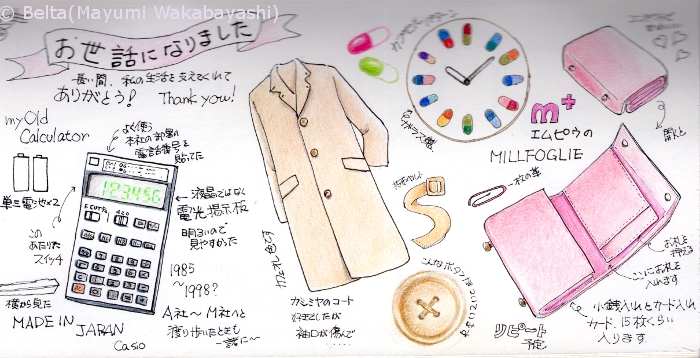 © Belta(Mayumi Wakabayashi)
お世話になりました
長い間、私の生活を支えてくれて
ありがとう! Thank you!
my Old
Calculator
よく使う
本社の部署の
電話番号を
貼ってた
単三電池×2
この
あたりた
スイッチ
横から見た
MADE IN JAPAN
Casio
123456
←液晶ではなく
電光掲示板
明るいので
見やすかった
1985
～1998?
A社～M社へと
渡り歩いたときも
一緒に～
カシミヤのコート
好きでしたが
袖口が傷んで
共布ベルト
こんなボタンがついています
m+
エムピウの
MILLFOGLIE
開くと
一枚の革
お札を
押える
ここにお札を
入れます
小銭入れとカード入れ
カード、15枚くらい
入ります
リピート
予定